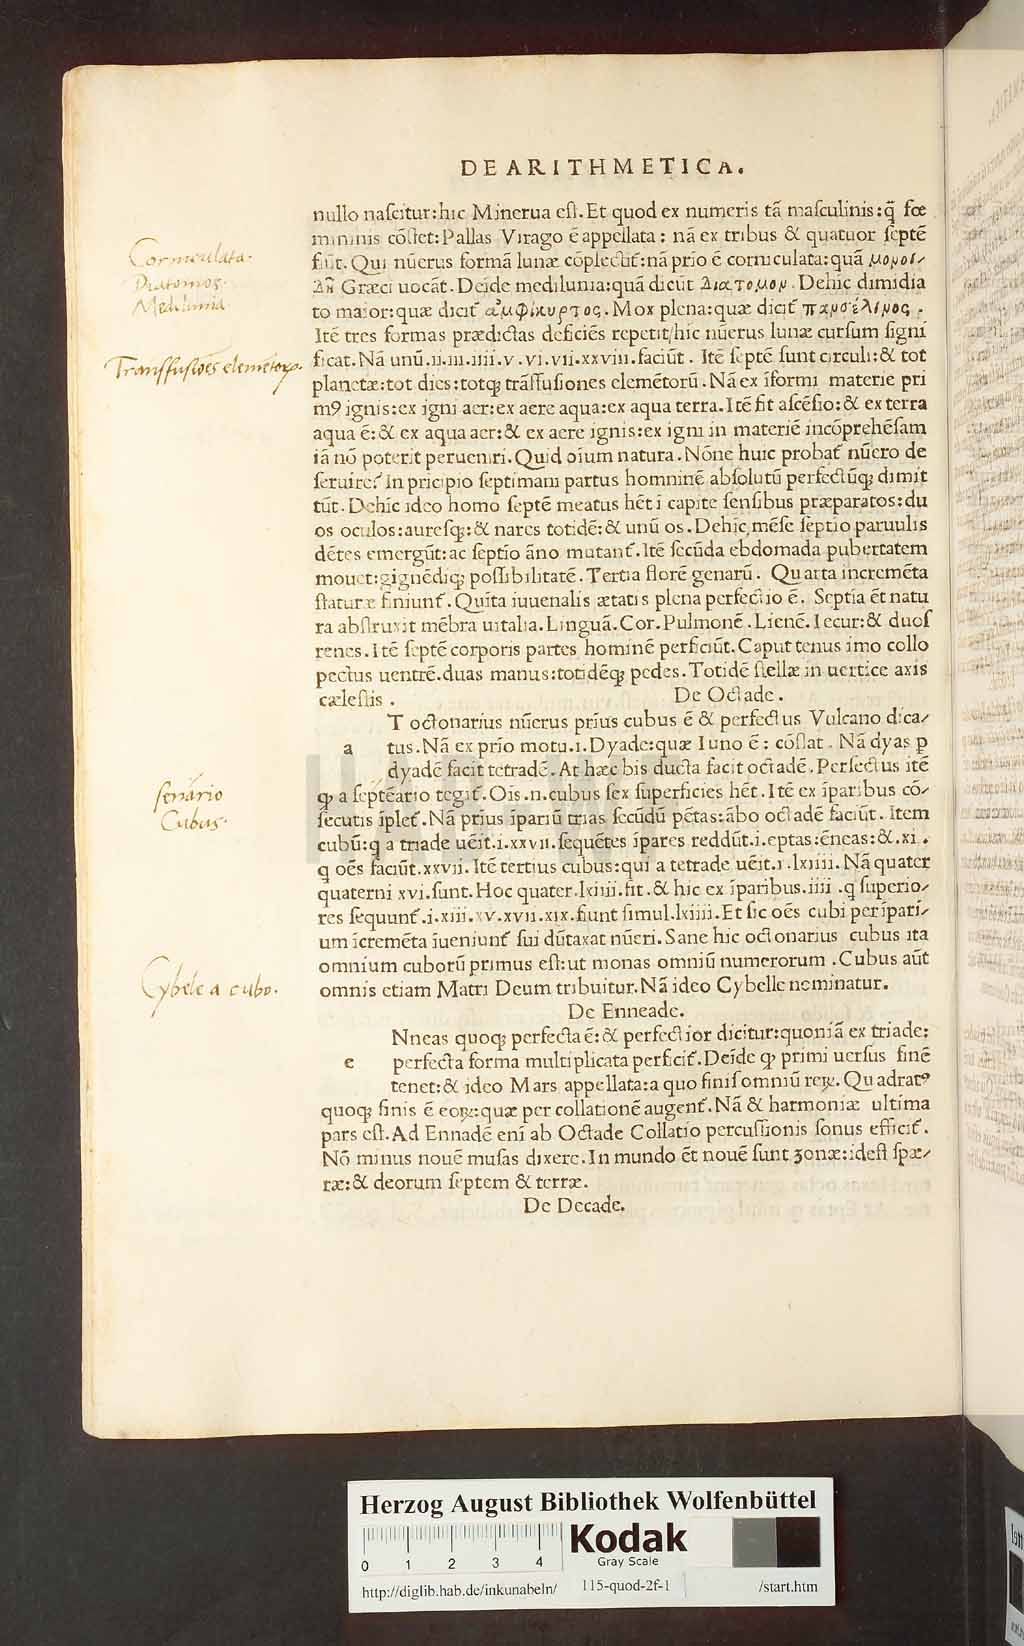 DE ARITHMETICA.
nullo nascitur:hic Minerua est.Et quod ex numeris tā masculinis:q̄ fœ
mininis cōstet:Pallas Virago ē appellata: nā ex tribus & quatuor septē
fiūt. Qui nūerus formā lunæ cōplectit᷑:nā prīo ē corniculata:quā μονοι-
Δῆ Græci uocāt.Deīde medilunia:quā dicūt Διατομον.Dehīc dimidia
to maior:quæ dicit᷑ ἀμφίκυρτος.Mox plena:quæ dicit᷑ πανσέλινος.
Itē tres formas prædictas deficiēs repetit/hic nūerus lunæ cursum signi
ficat.Nā unū.ii.iii.iiii.v.vi.vii.xxviii.faciūt. Itē septē sunt circuli:& tot
planetæ:tot dies:totq; trāsfusiones elemētorū.Nā ex īformi materie pri
mꝰ ignis:ex igni aer:ex aere aqua:ex aqua terra.Itē fit ascēsio:& ex terra
aqua ē:& ex aqua aer:& ex aere ignis:ex igni in materiē incōprehēsam
iā nō poterit perueniri.Quid oīum natura.Nōne huic probat᷑ nūero de
seruire? In prīcipio septimani partus hominē absolutū perfectūq; dimit
tūt.Dehīc ideo homo septē meatus hēt ī capite sensibus præparatos:du
os oculos:auresq;:& nares totidē:& unū os.Dehīc mēse septīo paruulis
dētes emergūt:ac septīo āno mutant᷑.Itē secūda ebdomada pubertatem
mouet:gignēdiq; possibilitatē.Tertia florē genarū. Quarta incremēta
staturæ finiunt᷑.Quīta iuuenalis ætatis plena perfectio ē. Septīa ēt natu
ra abstruxit mēbra uitalia.Linguā.Cor.Pulmonē.Lienē.Iecur:& duos
renes.Itē septē corporis partes hominē perficiūt.Caput tenus imo collo
pectus uentrē.duas manus:totidēq; pedes.Totidē stellæ in uertice axis
cælestis. De Octade.
T octonarius nūerus prius cubus ē & perfectus Vulcano dica-
a tus.Nā ex prīo motu.i.Dyade:quæ Iuno ē: cōstat. Nā dyas ꝑ
dyadē facit tetradē.At hæc bis ducta facit octadē.Perfectus itē
q; a septēario tegit᷑.Oīs.n.cubus sex superficies hēt.Itē ex īparibus cō-
secutis īplet᷑.Nā prius īpariū trias secūdū pētas:ābo octadē faciūt. Item
cubū:q a triade uēit.i.xxvii.sequētes īpares reddūt.i.eptas:ēneas:&.xi.
q oēs faciūt.xxvii.Itē tertius cubus:qui a tetrade uēit.i.lxiiii.Nā quater
quaterni xvi.sunt.Hoc quater.lxiiii.fit.& hic ex īparibus.iiii.q superio-
res sequunt᷑.i.xiii.xv.xvii.xix.fiunt simul.lxiiii.Et sic oēs cubi per īpari-
um īcremēta īueniunt᷑ sui dūtaxat nūeri.Sane hic octonarius cubus ita
omnium cuborū primus est:ut monas omniū numerorum.Cubus aūt
omnis etiam Matri Deum tribuitur.Nā ideo Cybelle nominatur.
De Enneade.
Nneas quoq; perfecta ē:& perfectior dicitur:quoniā ex triade:
e perfecta forma multiplicata perficit᷑.Deīde q; primi uersus finē
tenet:& ideo Mars appellata:a quo finis omniū reꝝ. Quadratꝰ
quoq; finis ē eoꝝ:quæ per collationē augent᷑.Nā & harmoniæ ultima
pars est.Ad Ennadē enī ab Octade Collatio percussionis sonus efficit᷑.
Nō minus nouē musas dixere.In mundo ēt nouē sunt zonæ:idest spæ-
ræ:& deorum septem & terræ.
De Decade.
Corniculata.
Diatomos.
Medilunia
Transfusiōes elemētoꝝ.
senārio
Cubus.
Cybele a cubo.
HAB-WF
Herzog August Bibliothek Wolfenbüttel
0 1 2 3 4
Kodak
Gray Scale
http://diglib.hab.de/inkunabeln/ 115-quod-2f-1 /start.htm